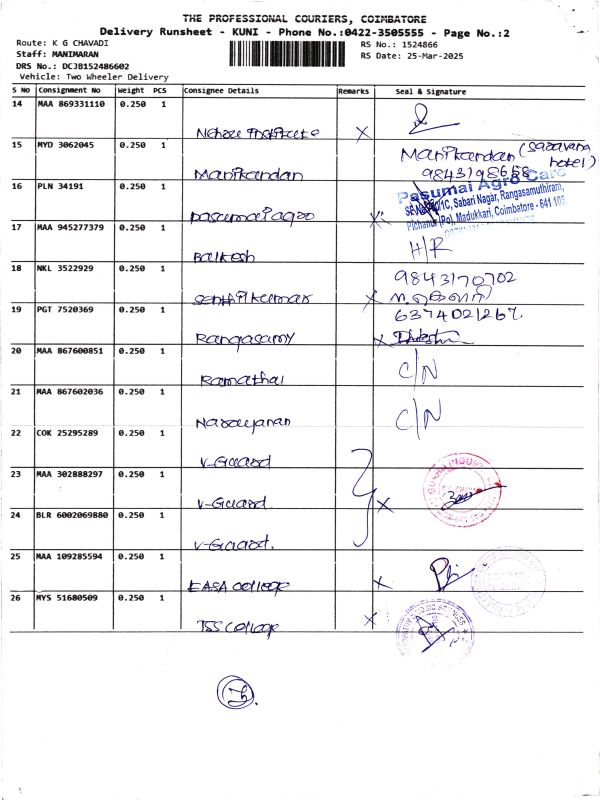 THE PROFESSIONAL COURIERS, COIMBATORE
Delivery Runsheet - KUNI - Phone No.:0422-3505555 - Page No.:2
Route: K G CHAVADI
Staff: MANIMARAN
DRS No.: DCJB152486602
Vehicle: Two Wheeler Delivery
RS No.: 1524866
RS Date: 25-Mar-2025
S No Consignment No Weight PCS Consignee Details Remarks Seal & Signature
14 MAA 869331110 0.250 1
Nehru Institute X
15 MYD 3062045 0.250 1
Manikandan Manikandan (Saravana hotel)
9843198658
16 PLN 34191 0.250 1
Pasumai agro X
Pasumai Agro Care
Sabari Nagar, Rangasamuthiram,
Pichanur (Po), Madukkari, Coimbatore - 641 105
17 MAA 945277379 0.250 1
Balkesh H/R
18 NKL 3522929 0.250 1
Senthilkumar X 9843170702
19 PGT 7520369 0.250 1
6374021267
Rangasamy X
20 MAA 867600851 0.250 1
Ramathal C/N
21 MAA 867602036 0.250 1
Narayanan C/N
22 COK 25295289 0.250 1
V-Guard
23 MAA 302888297 0.250 1
V-Guard X
24 BLR 6002069880 0.250 1
V-Guard.
25 MAA 109285594 0.250 1
EASA College X
26 MYS 51680509 0.250 1
TSS College X